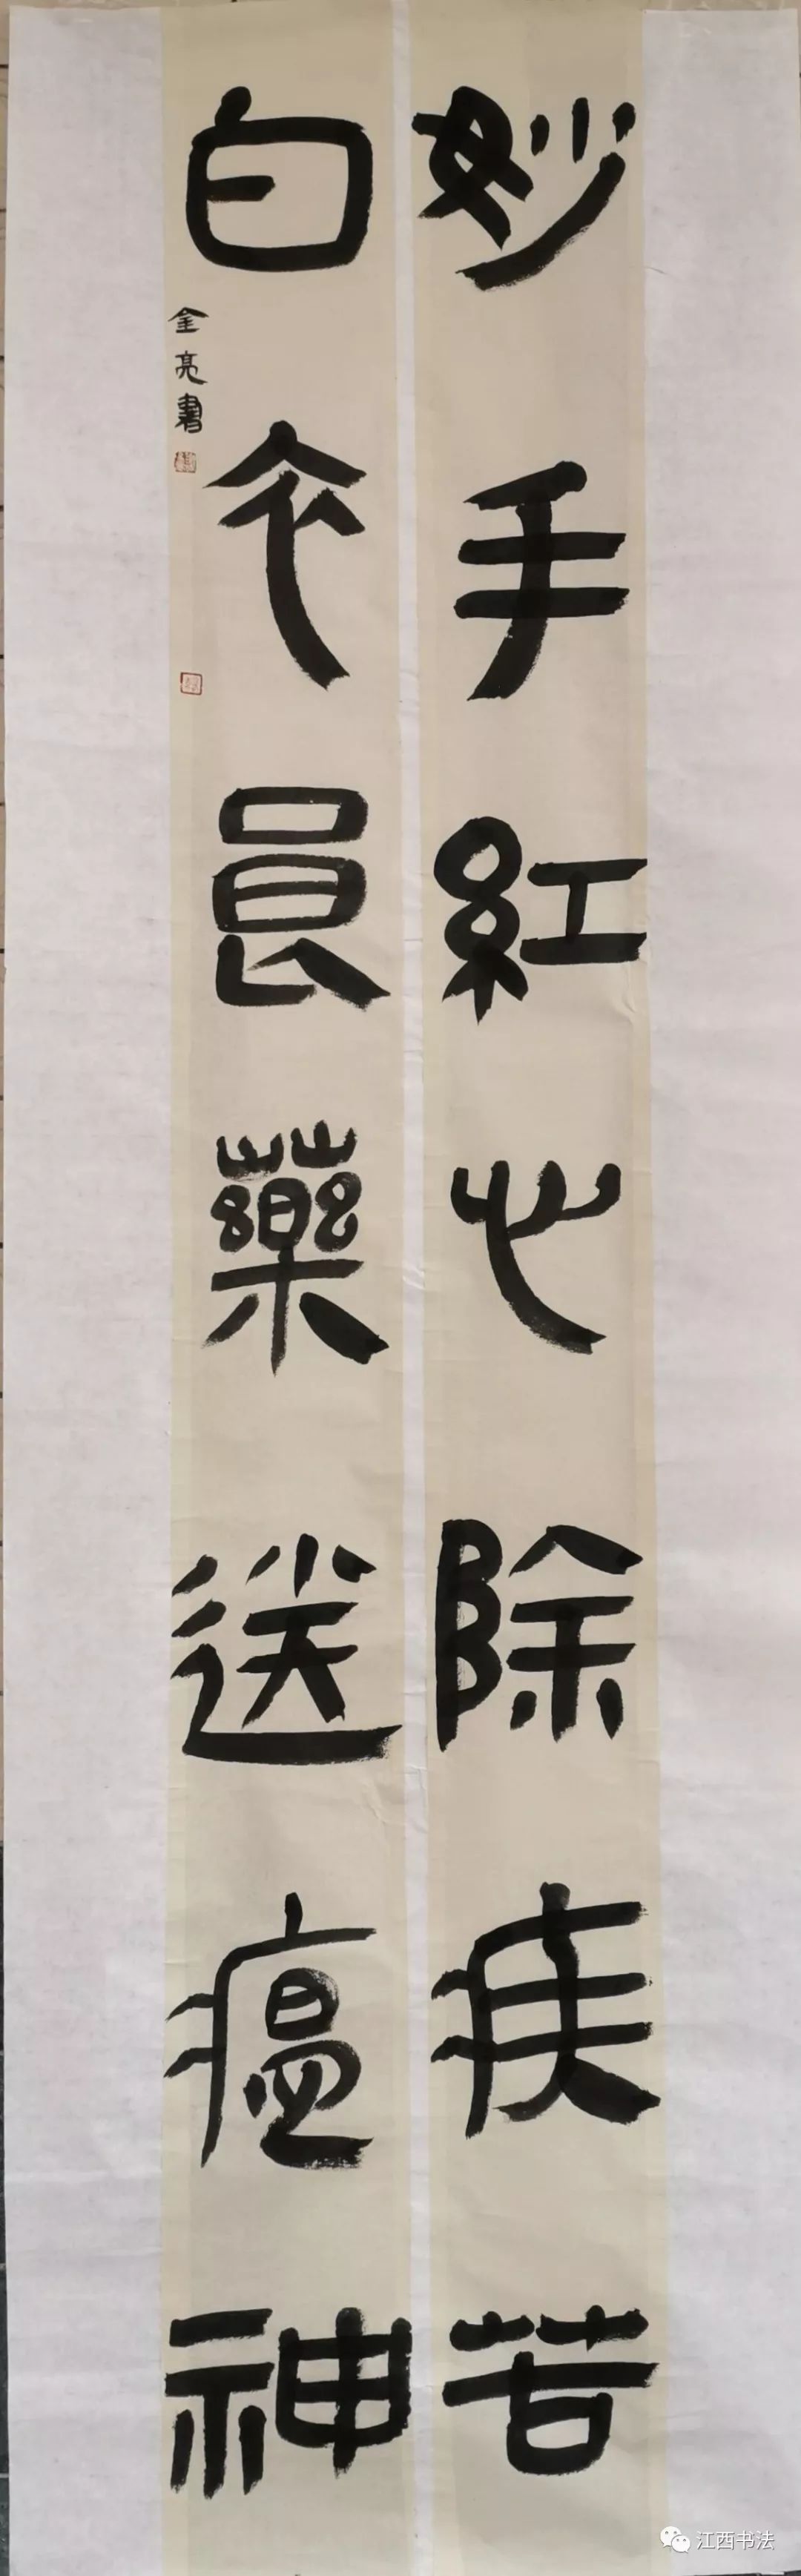 妙手紅心除疾苦
白衣良藥送瘟神
全亮書
江西书法